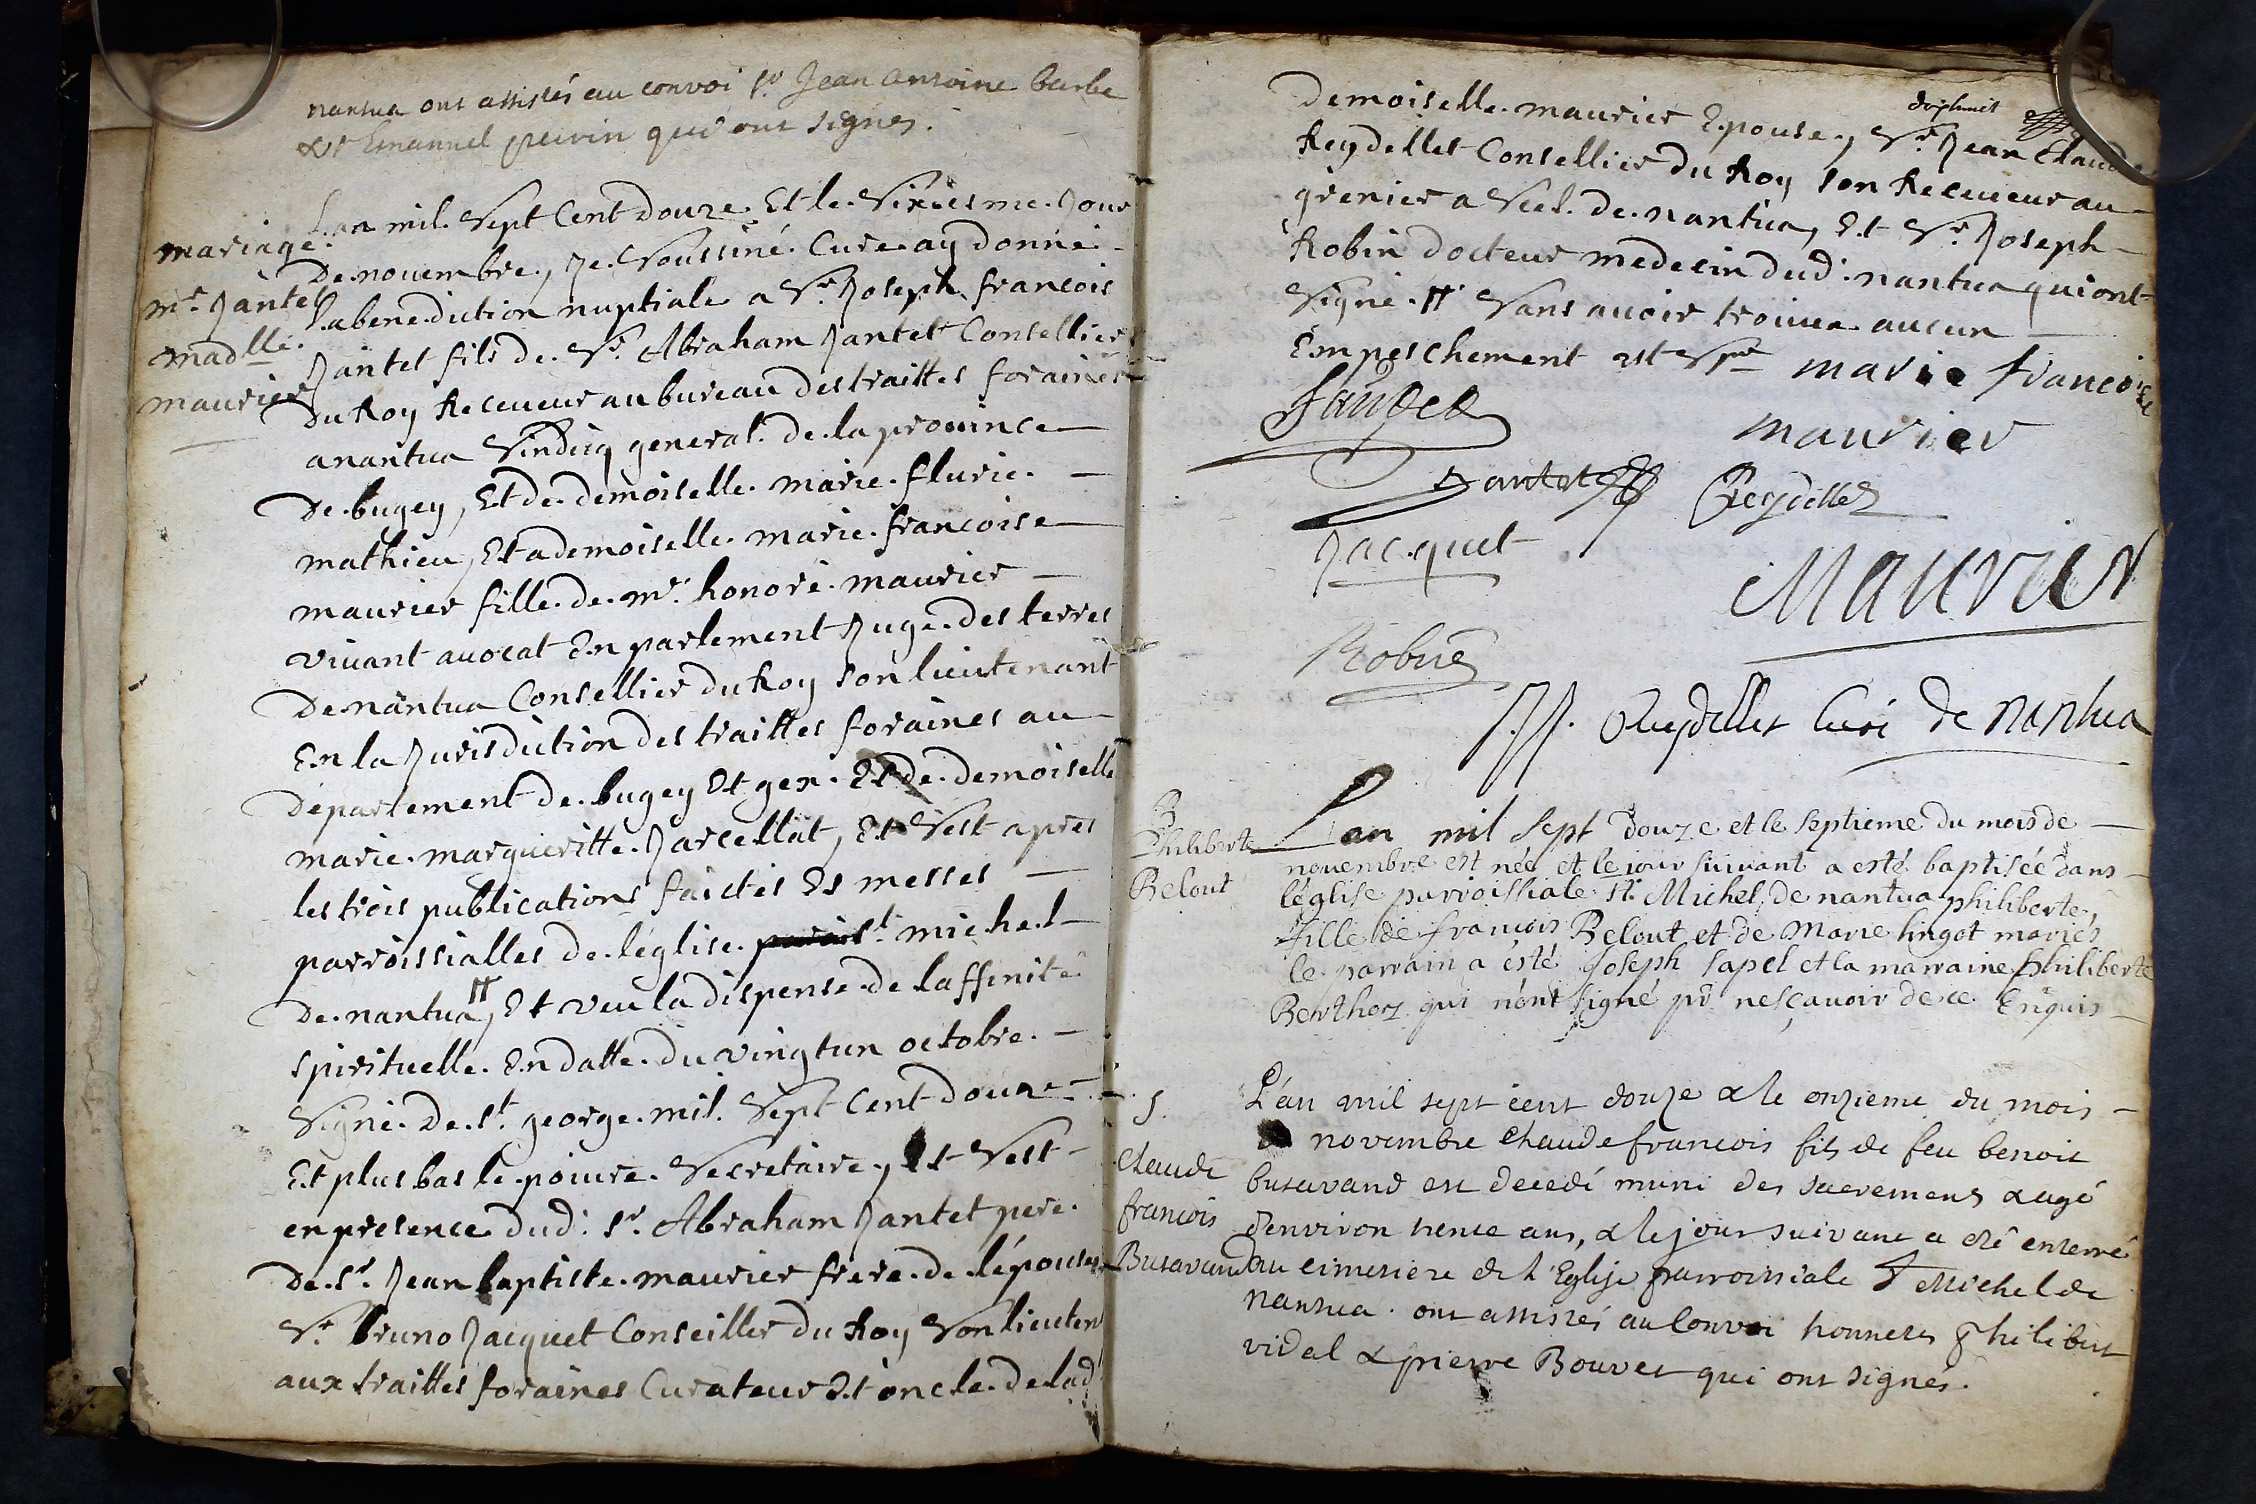 nantua ont assistés au convoi sr. Jean antoine barbe
& sr Emanuel perrin qui ont signés.
mariage.
mr. Jantet
madlle.
maurier
Lan mil. Sept Cent douze. Et le. Sixiesme. Jour
De. nouembre, Je. Soussiné. Cure. ay donné
Labene.diction nuptiale a Sr. Joseph francois
Jantet fils de. Sr. Abraham Jantet Consellier
du Roy Receueur au bureau des traittes foraines
anantua Sindicq general. de. la prouince
De. bugey, Et de. demoiselle. marie. flurie.
mathieu, Et a demoiselle. marie. francoise
maurier fille. de. mr. honoré. maurier
viuant auocat En parlement Juge. des terres
De. nantua Consellier du Roy Son lieutenant
En la Jurisdiction des traittes foraines au
Département de. bugey Et gex. Et de. demoiselle
marie. margueritte. Jarcellat, Et Sest apres
les trois publications faictes Es messes
parroissialles de. léglise. st. michel
De. nantua, # Et veu la dispense. de laffinité
spirituelle. En datte. du vingt un octobre.
Signé. De. st. george. mil. Sept Cent douze
Et plus bas le. poiure. Secretaire, Et Sest
en presence dud: sr. Abraham Jantet pere.
De. sr. Jean baptiste. maurier frere. de lépouse
Sr. bruno Jacquet Conseiller du Roy Son lieuten
aux traittes foraines Curateur Et oncle. de lad
demoiselle. maurier Epouse, Sr. Jean Claude
Reydellet Consellier du Roy Son Receueur au
grenier a Sel. de. nantua, Et Sr. Joseph
Robin docteur medecin dud: nantua qui ont
Signé. # Sans auoir trouué aucun
Empeschement
marie francoise
maurier
Jantet
Jantet
Reydellet
Jacquet
Maurier
Robin
Reydellet Curé de Nantua
B
Philiberte
Belout
Lan mil sept douze et le septieme du mois de
nouembre est née et le iour suiuant a esté baptisée dans
léglise parroissiale st. Michel de nantua philiberte,
fille de francois Belout et de Marie lingot mariés
le parrain a esté Joseph sapel et la marraine philiberte
Berthoz qui n'ont signé pr. nesçauoir de ce Enquis
S.
Claude
francois
Busavand
L'an mil sept cent douze & le onzieme du mois
de novembre Claude francois fils de feu benoit
busavand est decedé muni des sacremens & agé
d'environ trente ans, & le jour suivant a été enterré
au cimetiere de l'Eglise parroissiale St Michel de
nantua. ont assistés au Convoi honnetes Philibert
vidal & pierre Bouvet qui ont signés.